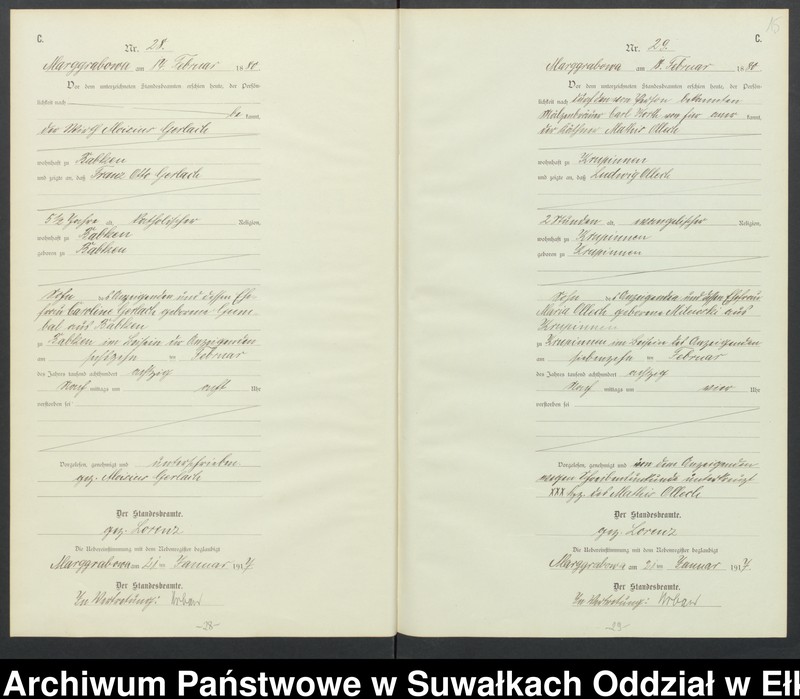 C.
Nr. 28.
Marggrabowa am 19. Februar 1880
Vor dem unterzeichneten Standesbeamten erschien heute, der Persön-
lichkeit nach
be kannt,
der Wirth Gerlach
wohnhaft zu Babken
und zeigte an, daß Franz Otto Gerlach
5 1/2 Jahre alt, katholischer Religion,
wohnhaft zu Babken
geboren zu Babken
Sohn des Anzeigenden und dessen Ehe-
frau Caroline Gerlach geborene Gem-
bal aus Babken
zu Babken im Beisein des Anzeigenden
am sechszehn ten Februar
des Jahres tausend achthundert achtzig
Nach mittags um acht Uhr
verstorben sei
Vorgelesen, genehmigt und unterschrieben
gez. Gerlach
Der Standesbeamte.
gez. Lorenz
Die Uebereinstimmung mit dem Nebenregister beglaubigt
Marggrabowa am 21 ten Januar 1917
Der Standesbeamte.
In Vertretung:
-28-
15
C.
Nr. 29.
Marggrabowa am 18. Februar 1880
Vor dem unterzeichneten Standesbeamten erschien heute, der Persön-
lichkeit nach durch den von Person bekannten
Carl aner kannt,
der Käthner Mathis Ollech
wohnhaft zu Krupinnen
und zeigte an, daß Ludwig Ollech
2 Stunden alt, evangelischer Religion,
wohnhaft zu Krupinnen
geboren zu Krupinnen
Sohn des Anzeigenden und dessen Ehefrau
Maria Ollech geborene aus
Krupinnen
zu Krupinnen im Beisein des Anzeigenden
am siebenzehn ten Februar
des Jahres tausend achthundert achtzig
Nach mittags um vier Uhr
verstorben sei
Vorgelesen, genehmigt und von dem Anzeigenden
wegen Schreibensunkunde unterkreuzt
XXX hz. des Mathis Ollech
Der Standesbeamte.
gez. Lorenz
Die Uebereinstimmung mit dem Nebenregister beglaubigt
Marggrabowa am 21 ten Januar 1917
Der Standesbeamte.
In Vertretung:
-29-
Archiwum Państwowe w Suwałkach Oddział w Eł